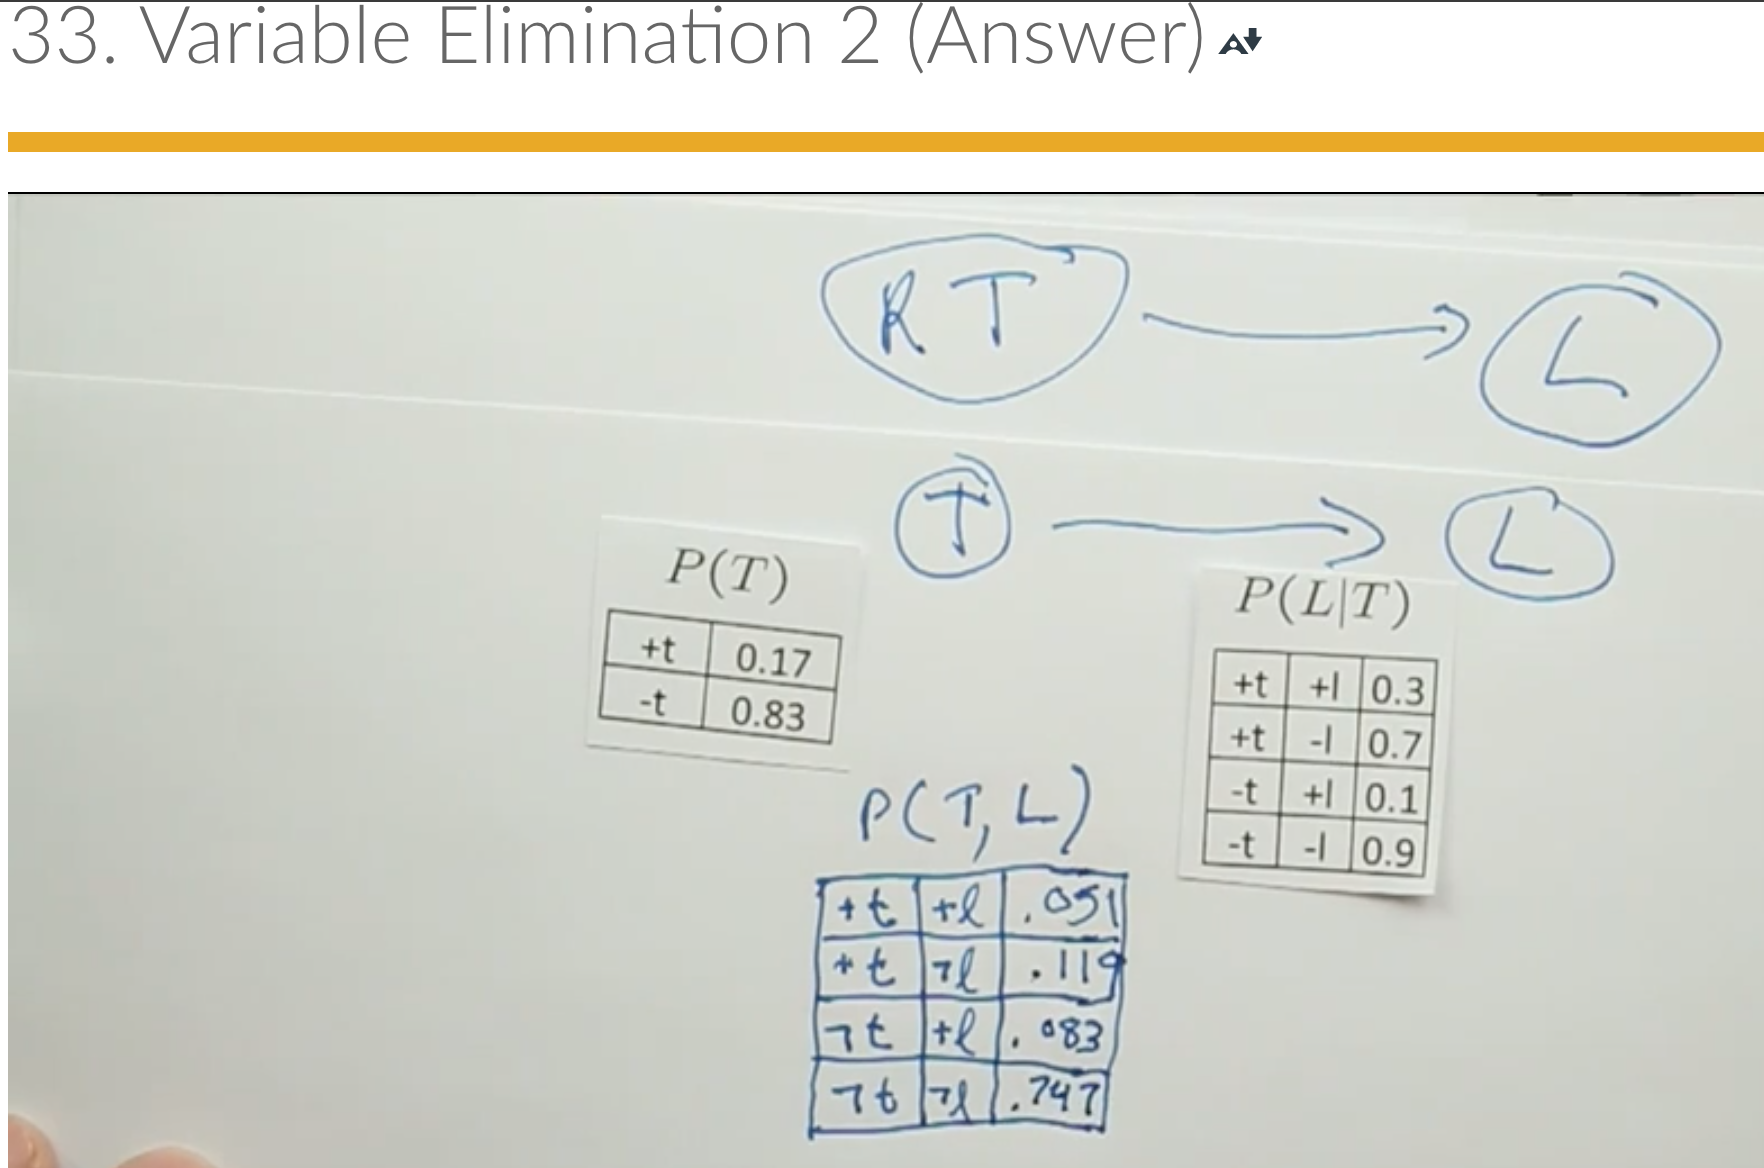 33. Variable Elimination 2 (Answer)
R T
L
T
L
P(T)
+t 0.17
-t 0.83
P(L|T)
+t +l 0.3
+t -l 0.7
-t +l 0.1
-t -l 0.9
P(T, L)
+t +l .051
+t ¬l .119
¬t +l .083
¬t ¬l .747